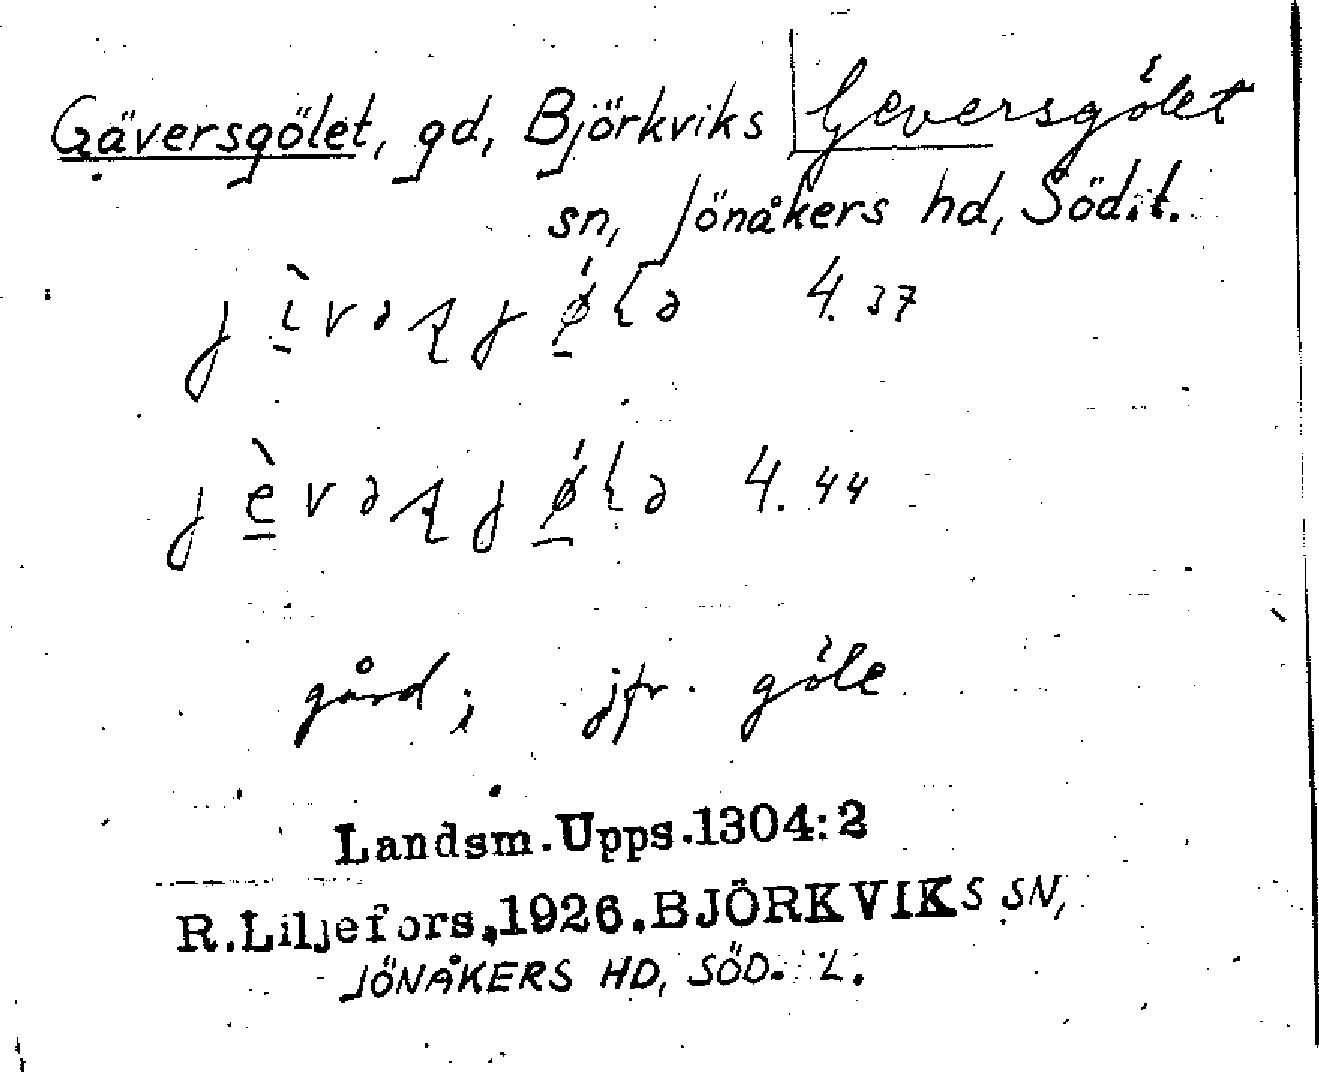 Gäversgölet, gd, Björkviks Geversgölet
sn, Jönåkers hd, Söd.t.
4.37
4.44
gård; jfr. göle
Landsm.Upps.1304:2
R.Liljefors.1926.BJÖRKVIKS SN,
JÖNÅKERS HD, SÖD. L.